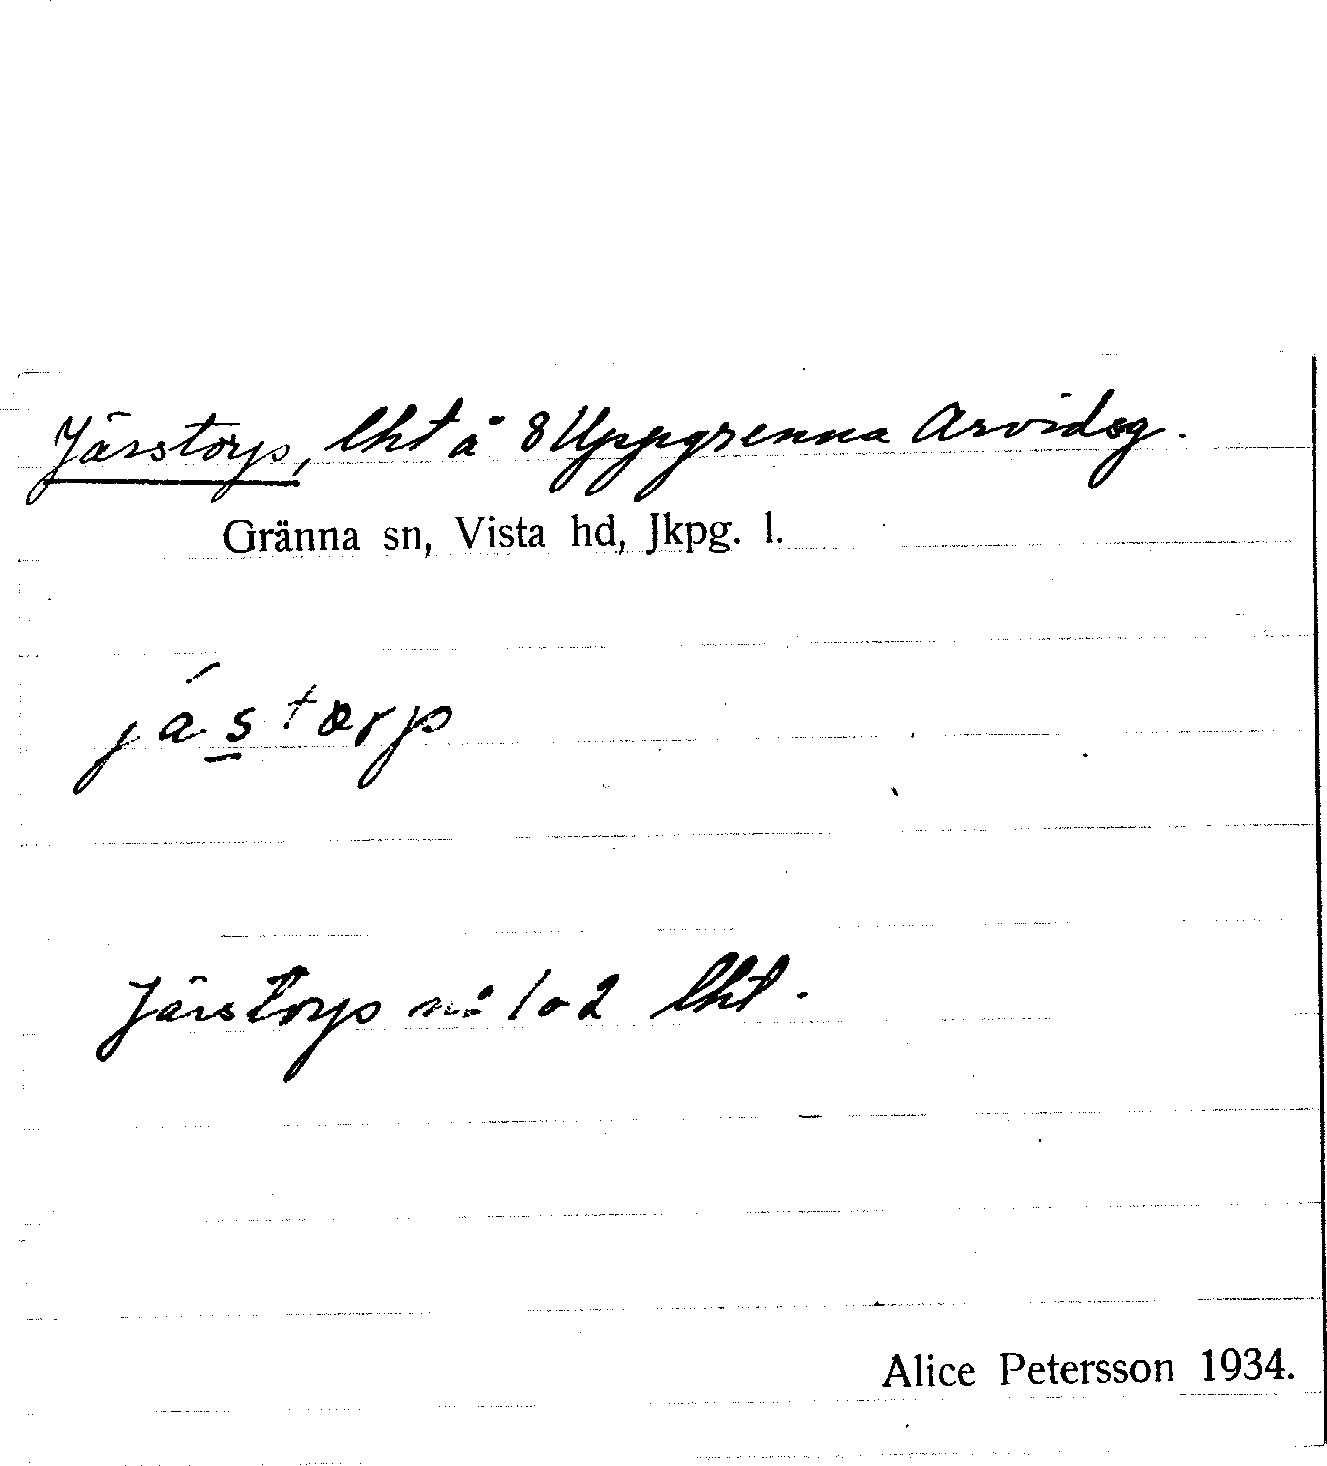 Järstorp, lht å 8 Uppgrenna Arvidsg.
Gränna sn, Vista hd, Jkpg. l.
jástorp
Järstorp n:o 1 o 2 lht.
Alice Petersson 1934.